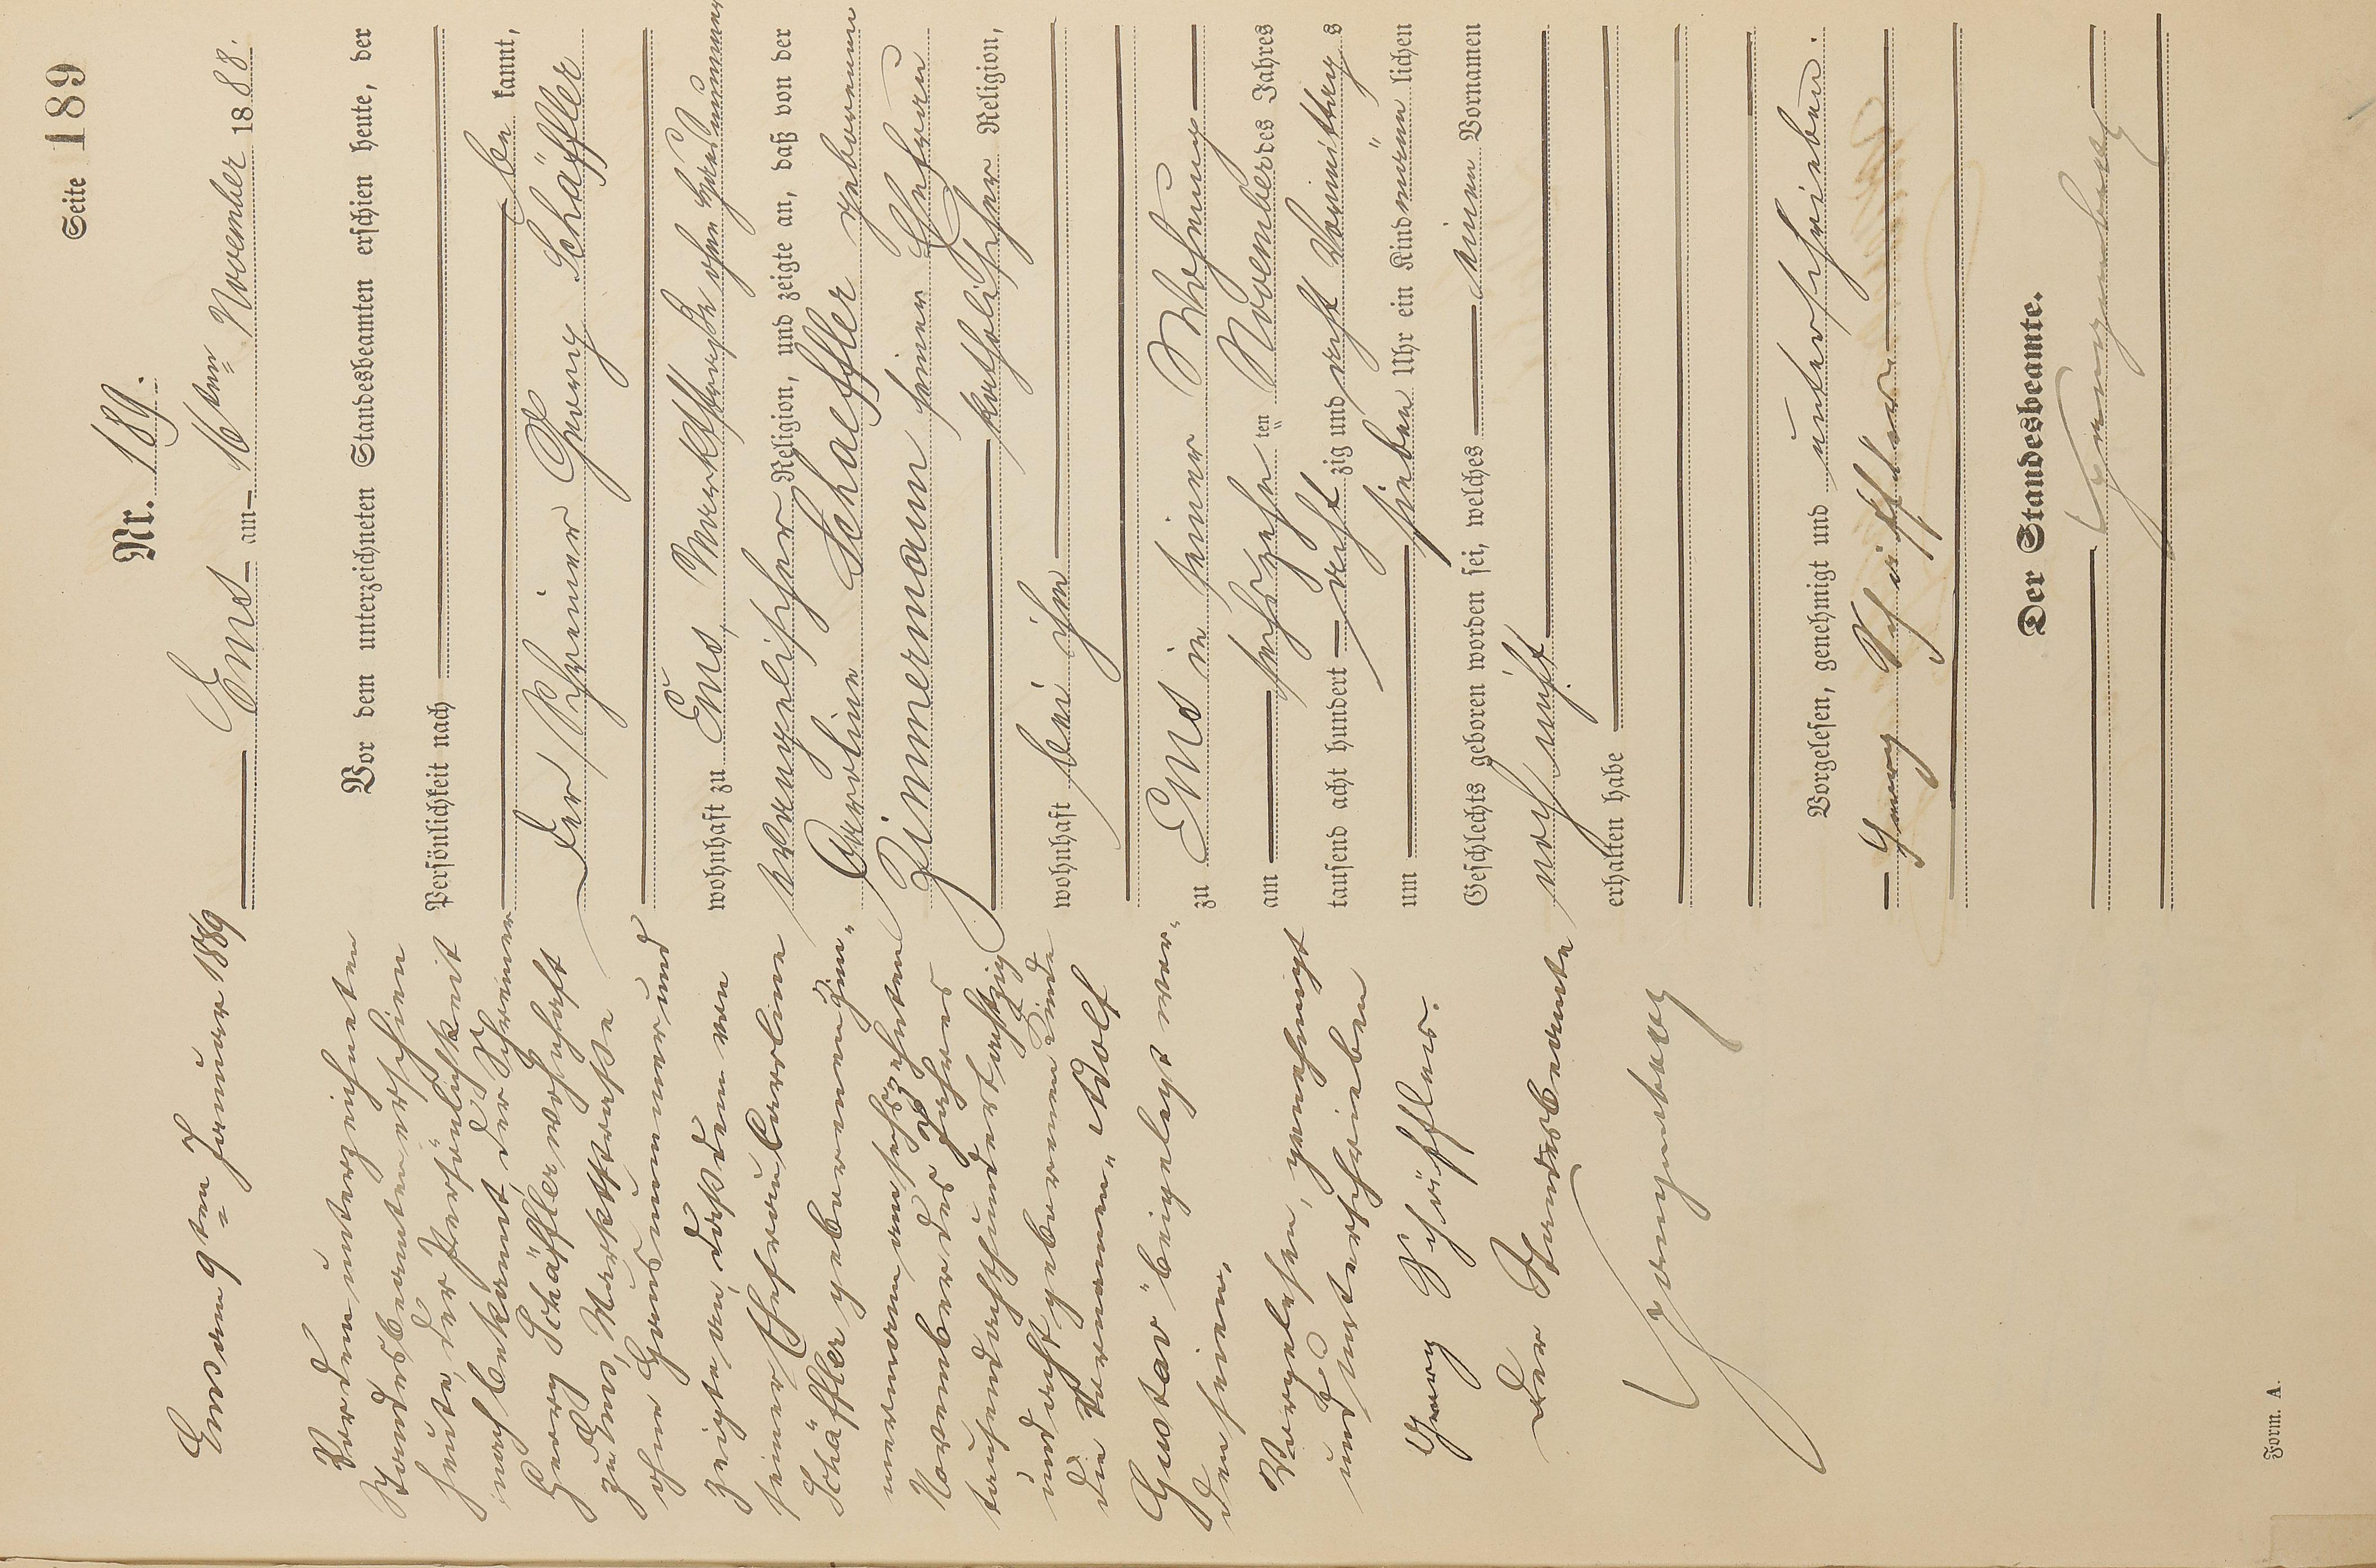 Seite 189
Nr. 189.
Ems am 16ten November 1888.
Vor dem unterzeichneten Standesbeamten erschien heute, der
Persönlichkeit nach
be kannt,
der Schreiner Georg Schäffler
wohnhaft zu Ems, Marktstraße ohne Hausnummer
evangelischer Religion, und zeigte an, daß von der
Carline Schaeffler geborenen
Zimmermann seiner Ehefrau
katholischer Religion,
wohnhaft bei ihm
zu Ems in seiner Wohnung
am sechszehn ten November des Jahres
tausend acht hundert acht zig und acht Vormittags
um sieben Uhr ein Kind männ lichen
Geschlechts geboren worden sei, welches einen Vornamen
noch nicht
erhalten habe
Vorgelesen, genehmigt und unterschrieben.
Georg Schäffler
Der Standesbeamte.
Ems am 9ten Januar 1889
Vor dem unterzeichneten
Standesbeamten erschien
heute, der Persönlichkeit
nach bekannt, der Schreiner
Georg Schäffler wohnhaft
zu Ems, Marktstraße
ohne Hausnummer und
zeigte an, dass dem von
seiner Ehefrau Carline
Schäffler geborenen Zim-
mermann am sechszehnten
November des Jahres
tausendachthundertachtzig
und acht geborenen Kinde
die Vornamen "Adolf
Gustav" beigelegt wor-
den seien.
Vorgelesen, genehmigt
und unterschrieben
Georg Schäffler.
Der Standesbeamte
Form. A.